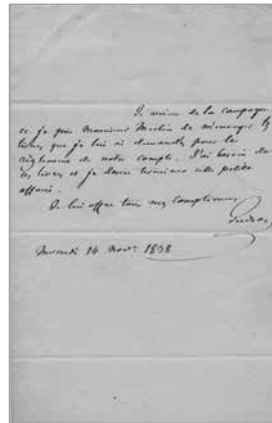 Je reviens de la campagne
et je prie Monsieur Merlin de m'envoyer les
livres que je lui ai demandés pour le
règlement de notre compte. J'ai besoin de
ces livres et je désire terminer cette petite
affaire.
Je lui offre tous mes compliments
Mercredi 14 Novr 1838